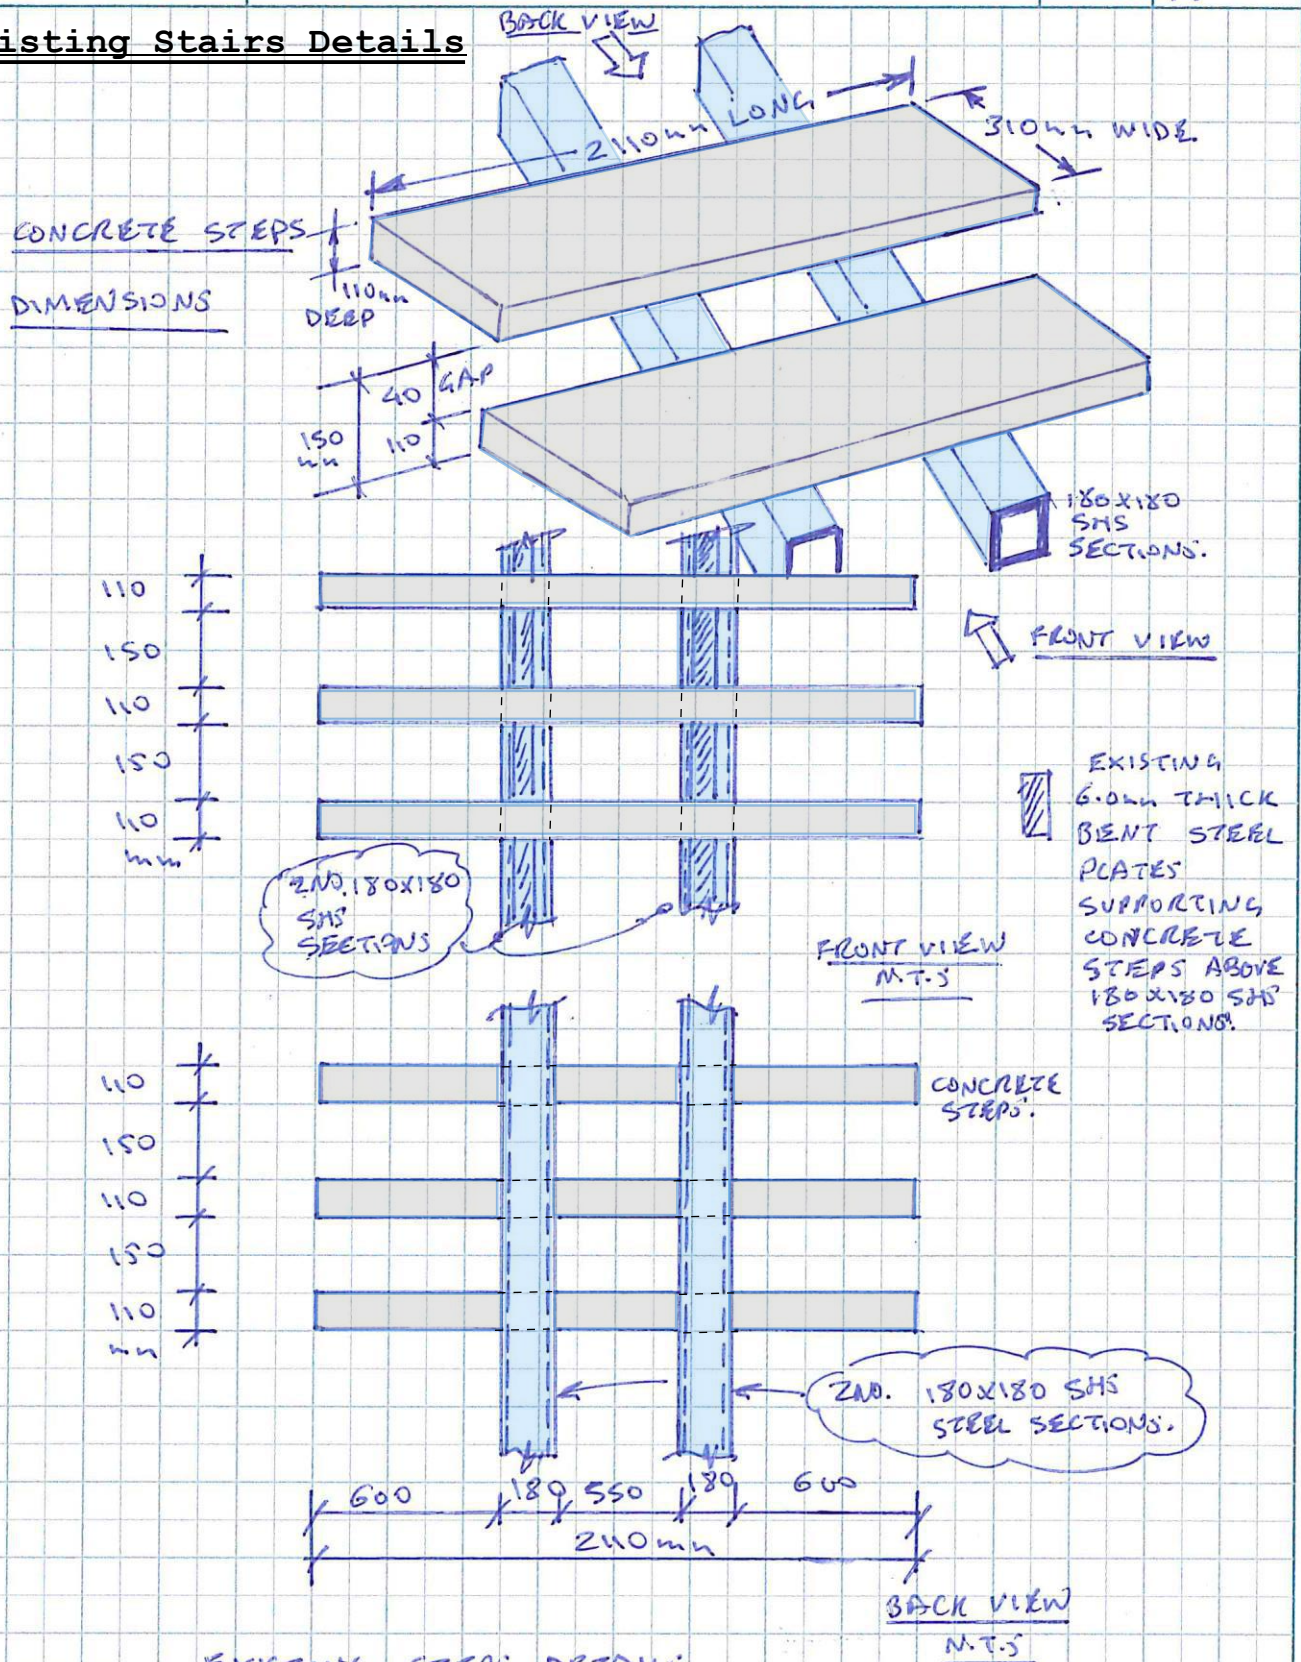 isting Stairs Details
BACK VIEW
2110mm LONG
310mm WIDE
CONCRETE STEPS
DIMENSIONS
110mm
DEEP
40 GAP
110
150
mm
180X180
SHS
SECTIONS.
FRONT VIEW
110
150
110
150
110
mm
2NO. 180X180
SHS
SECTIONS
FRONT VIEW
N.T.S
EXISTING
6.0mm THICK
BENT STEEL
PLATES
SUPPORTING
CONCRETE
STEPS ABOVE
180X180 SHS
SECTIONS.
110
150
110
150
110
mm
CONCRETE
STEPS.
2NO. 180X180 SHS
STEEL SECTIONS.
600 180 550 180 600
2110mm
BACK VIEW
N.T.S